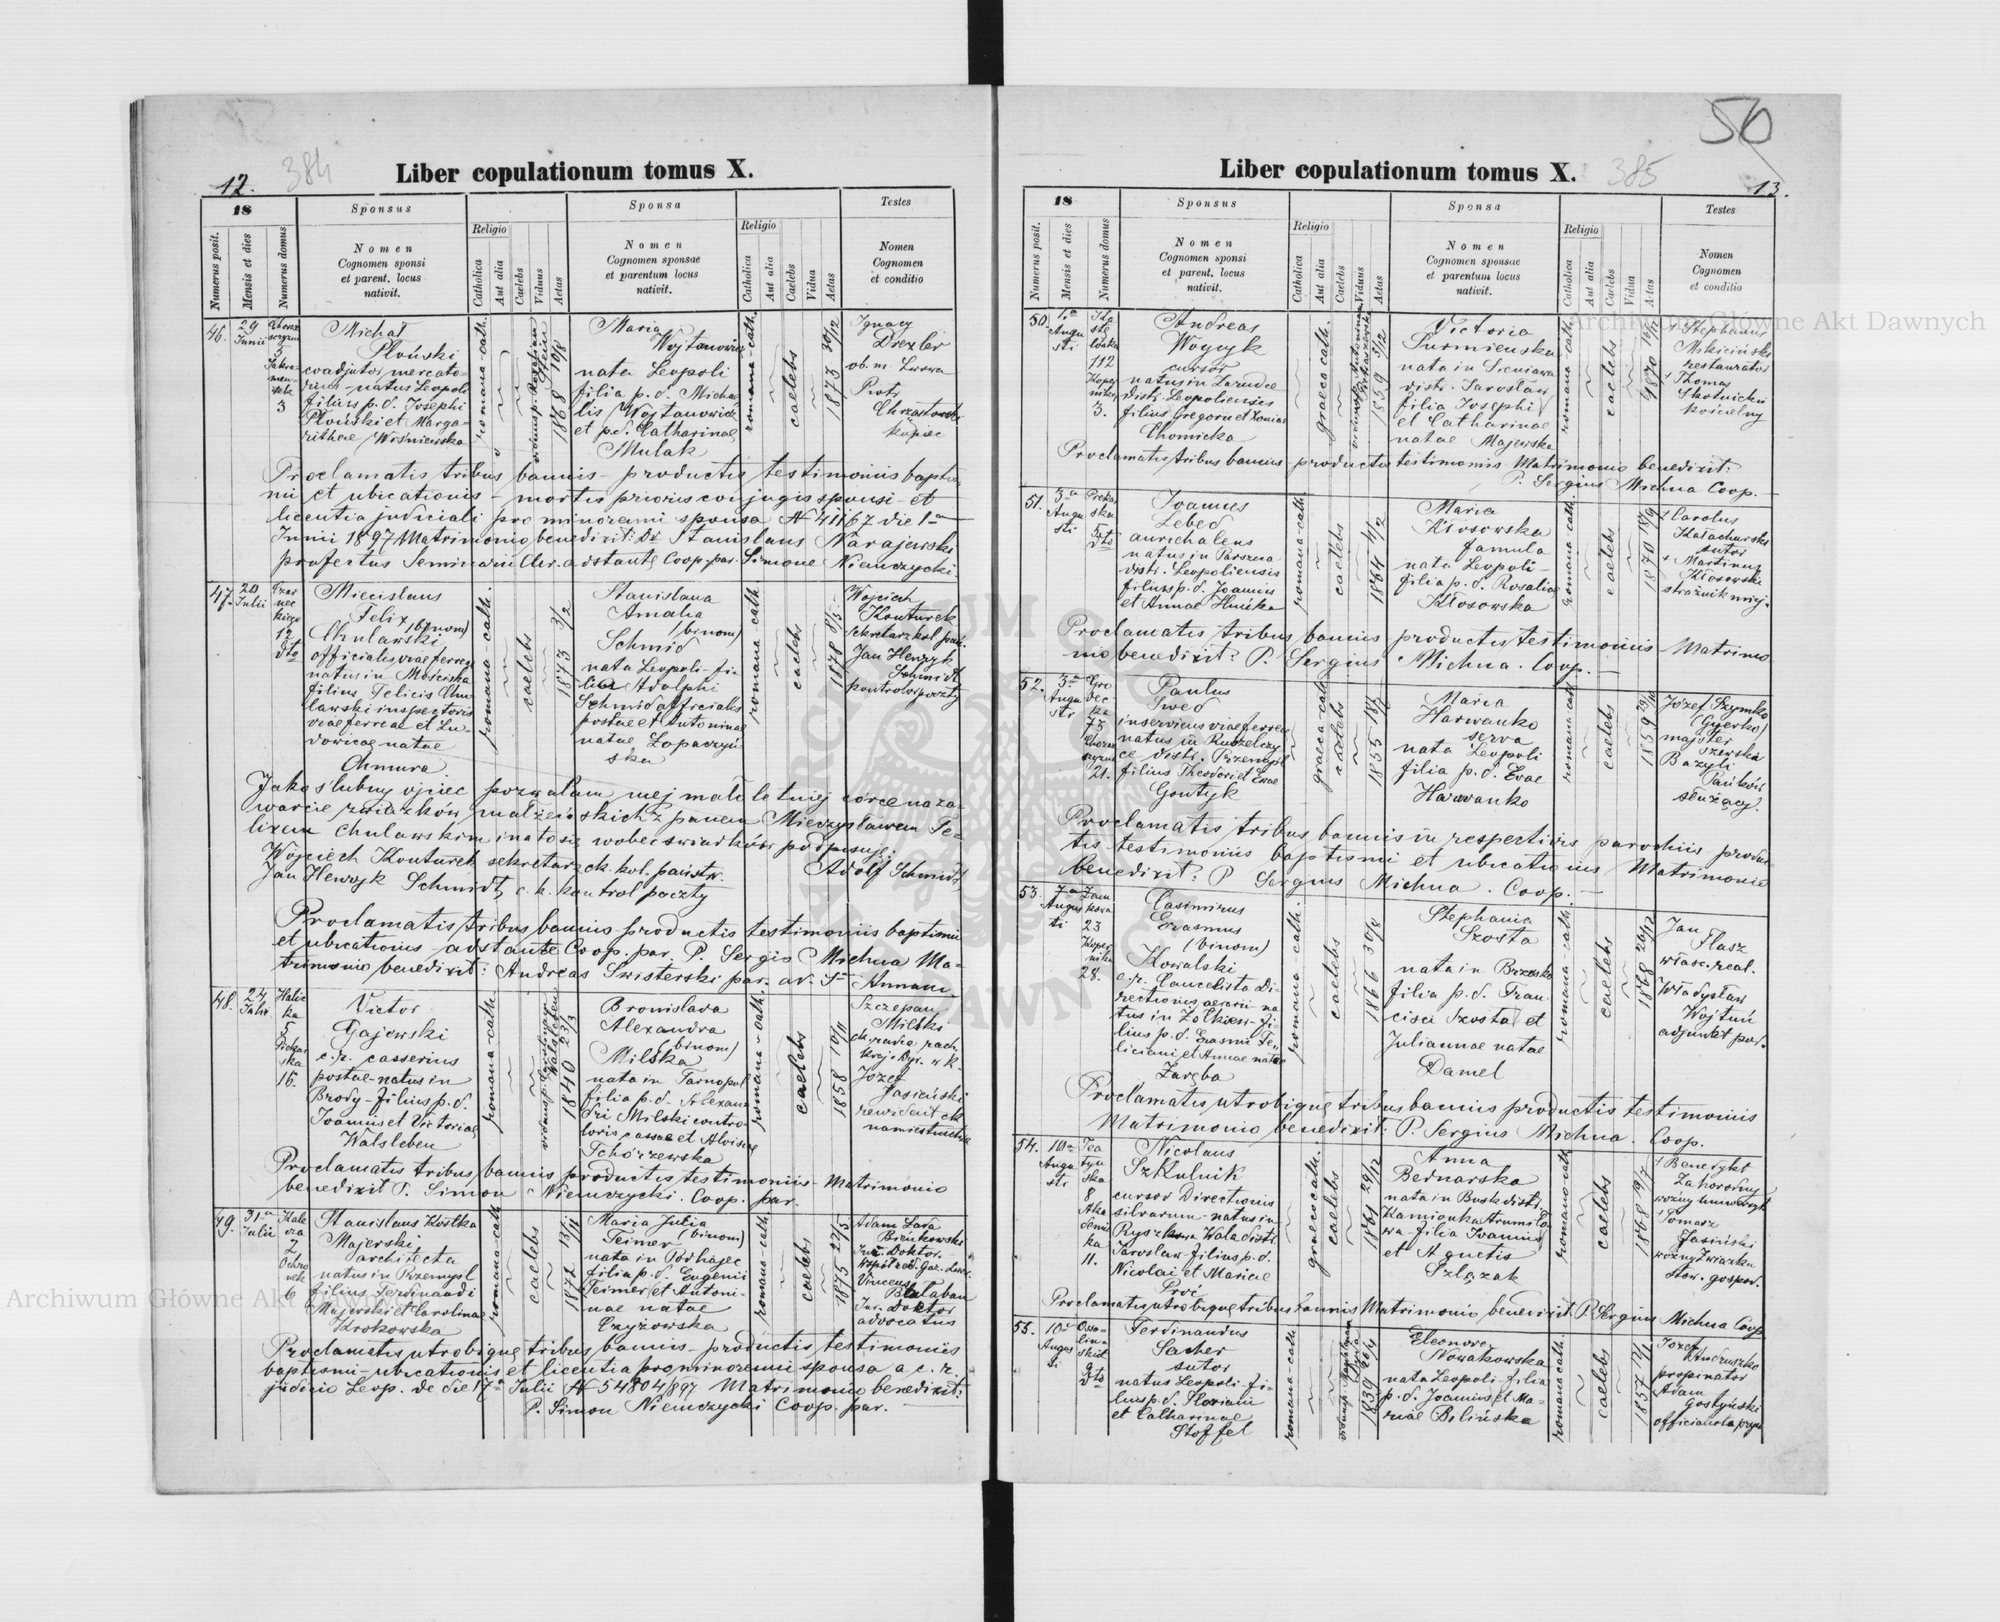 12.
384
Liber copulationum tomus X.
18
Sponsus
Sponsa
Testes
Numerus posit.
Mensis et dies
Numerus domus
Nomen
Cognomen sponsi
et parent. locus
nativit.
Religio
Catholica
Aut alia
Caelebs
Viduus
Aetas
Nomen
Cognomen sponsae
et parentum locus
nativit.
Religio
Catholica
Aut alia
Caelebs
Vidua
Aetas
Nomen
Cognomen
et conditio
46.
29
Junii
3
Michał
Płoński
coadjutor mercato-
rius - natus Leopoli
filius p. d. Josephi
Płoński et Marga-
rithae Wiśniewska
romano-cath.
1868 10/8
Maria
Wojtanowicz
nata Leopoli
filia p. d. Michae-
lis Wojtanowicz
et p. d. Catharinae
Mulak
romano-cath.
caelebs
1873 30/12
Ignacy
Drexler
ob. m. Lwowa
Piotr
Chrząstowski
kupiec
Proclamatis tribus bannis - productis testimoniis baptis-
mi et ubicationis - mortis prioris conjugis sponsi - et
licentia judiciali pro minorenni sponsa N 41167 die 1a
Junii 1897 Matrimonio benedixit: Dr Stanislaus Narajewski
profectus Seminarii Cler. adstante Coop. par. Simone Niemczycki.
47.
20
Julii
Czar
nec
kiego
12
dto
Miecislaus
Felix (binom)
Chulawski
officialis viae ferreae
natus in Mościska
filius Felicis Chu-
lawski inspectoris
viae ferreae et Lu-
dovicae natae
Chmura
romano-cath.
caelebs
1873 3/2
Stanislava
Amalia
(binom)
Schmid
nata Leopoli - fi-
lia Adolphi
Schmid officialis
postae et Antoninae
natae Łopaczyń-
ska
romano cath.
caelebs
Wojciech
Konturek
sekretarz kol. pań.
Jan Henryk
Schmidt
kontrolor poczty
Jako ślubny ojciec pozwalam mej małoletniej córce na za-
warcie związków małżeńskich z panem Mieczysławem Fe-
lixem Chulawskim i na to się wobec świadków podpisuję:
Wojciech Konturek sekretarz ck. kol. państw.
Adolf Schmidt
Jan Henryk Schmidt, c. k. kontrol poczty
Proclamatis tribus bannis productis testimoniis baptismi
et ubicationis - adstante Coop. par. P. Sergio Michna Ma-
trimonio benedixit: Andreas Swisterski par. ad. S. Annam.
48.
24
Julii
Halic
ka
5
Piekar
ska
16.
Victor
Gajewski
c. r. casserius
postae - natus in
Brody - filius p. d.
Joannis et Victoriae
Walsleben
romano-cath.
1840 23/3
Bronislava
Alexandra
(binom)
Milska
nata in Tarnopol
filia p. d. Alexan-
dri Milski contro-
loris cassae et Aloisiae
Tchórzewska
romano-cath.
caelebs
1858 10/11
Szczepan
Milski
Józef
Jasieński
rewident ck.
namiestnictwa
Proclamatis tribus bannis productis testimoniis - Matrimonio
benedixit P. Simon Niemczycki. Coop. par.
49.
31a
Julii
2
6
Stanislaus Kostka
Majerski
architecta
natus in Przemyśl
filius Ferdinandi
Majerski et Carolinae
Krokowska
romano-cath.
caelebs
1872 13/11
Maria Julia
(binom)
Teimer
nata in Podhajce
filia p. d. Eugenii
Teimer et Antoni-
nae natae
Czyżowska
romano-cath.
caelebs
1875 22/5
Adam Zara
Bieńkowski
Jur. Doktor.
Vincens
Bałaban
Jur. Doktor
advocatus
Proclamatis utrobique tribus bannis - productis testimoniis
baptismi - ubicationis et licentia pro minorenni sponsa a c. r.
judicio Leop. de die 17a Julii N 54804/897 Matrimonio benedixit:
P. Simon Niemczycki Coop. par.
50
385
13.
Liber copulationum tomus X.
18
Sponsus
Sponsa
Testes
Numerus posit.
Mensis et dies
Numerus domus
Nomen
Cognomen sponsi
et parent. locus
nativit.
Religio
Catholica
Aut alia
Caelebs
Viduus
Aetas
Nomen
Cognomen sponsae
et parentum locus
nativit.
Religio
Catholica
Aut alia
Caelebs
Vidua
Aetas
Nomen
Cognomen
et conditio
50.
1a
Augu
sti
112
Koper
nika
3.
Andreas
Woycyk
cursor
natus in Zarudce
distr. Leopoliensis
filius Gregorii et Xeniae
Chomicka
graeco cath.
1859 3/12
Victoria
Surmienska
nata in Sieniawa
distr. Jaroslaw
filia Josephi
et Catharinae
natae Majewska
romano cath.
caelebs
1870
Stephanus
Mikiciński
restaurator
Thomas
Skotnicki
kościelny
Proclamatis tribus bannis productis testimoniis Matrimonio benedixit:
P. Sergius Michna Coop.
51.
3a
Augu
sti
Piekar
ska
5
dto
Joannes
Lebed
aurichalcus
natus in
distr. Leopoliensis
filius p. d. Joannis
et Annae Hnidka
romano-cath.
caelebs
1864 4/2
Maria
Kłosowska
famula
nata Leopoli -
filia p. d. Rosaliae
Kłosowska
romano-cath.
caelebs
1870 18/9
Carolus
Kasachurski
sutor
Martinus
Kłosowski
strażnik miej.
Proclamatis tribus bannis productis testimoniis - Matrimo-
nio benedixit: P. Sergius Michna. Coop.
52.
3a
Augu
sti
Gro
dec
ka
75
21.
Paulus
Swed
inserviens viae ferreae
natus in
distr. Przemyśl
filius Theodori et Evae
Gontyk
graeco cath.
caelebs
1855 18/3
Maria
Harwanko
serva
nata Leopoli
filia p. d. Evae
Harwanko
romano cath.
caelebs
1859
Józef Szymko
majster
szewski
Bazyli
Pańków
służący.
Proclamatis tribus bannis in respectivis parochiis produc-
tis testimoniis baptismi et ubicationis / Matrimonio
benedixit: P. Sergius Michna. Coop.
53.
7a
Augus
ti
23
Koper
nika
28.
Casimirus
Erasmus
(binom)
Kowalski
c. r. Cancelista Di-
rectionis aerarii na-
tus in Żółkiew - fi-
lius p. d. Erasmi Fe-
liciani et Annae natae
Zaręba
romano-cath.
caelebs
1866
Stephania
Szosta
nata in Brzesko
filia p. d. Fran-
cisci Szosta et
Juliannae natae
Damel
romano-cath.
caelebs
1868 26/12
Jan
Flasz
właśc. real.
Władysław
Wojtuń
adjunkt pod.
Proclamatis utrobique tribus bannis productis testimoniis
Matrimonio benedixit: P. Sergius Michna. Coop.
54.
10a
Augu
sti
Tea
tyn
ska
8
Aka
demic
ka
11.
Nicolaus
Szkulnik
cursor Directionis
silvarum - natus in
Wola distr.
Jaroslaw - filius p. d.
Nicolai et Mariae
Proć
graeco cath.
caelebs
1861 29/12
Anna
Bednarska
nata in Busk distr.
Kamionka Strumiło-
wa - filia Joannis
et Agnetis
Szlązak
romano cath.
caelebs
1868 19/7
Benedykt
Zahorodny
Tomasz
Jasiński
woźny Związku
Stow. gospod.
Proclamatis utrobique tribus bannis Matrimonio benedixit P. Sergius Michna Coop
55.
10a
Augus
ti
Osso-
liń
skich
9
dto
Ferdinandus
Sacher
sutor
natus Leopoli - fi-
lius p. d. Floriani
et Catharinae
Stoffel
romano-cath.
1839 26/4
Eleonora
Nowakowska
nata Leopoli - filia
p. d. Joannis et Ma-
riae Bilińska
romano cath.
caelebs
1857
Józef
Andruszko
propinator
Adam
Gostyński
officianta
Archiwum Główne Akt Dawnych
Archiwum Główne Akt Dawnych